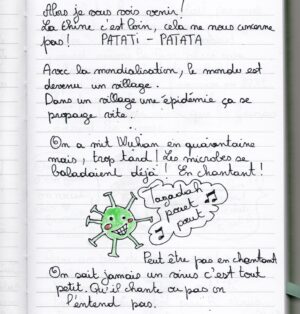 Alors je vous vois venir !
La Chine c'est loin, cela ne nous concerne
pas ! PATATI - PATATA
Avec la mondialisation, le monde est
devenu un village.
Dans un village une épidémie ça se
propage vite.
On a mit Wuhan en quarantaine
mais, trop tard ! Les microbes se
baladaient déjà ! En chantant !
Tagadah
pouet
pouet
Peut être pas en chantant
On sait jamais un virus c'est tout
petit. Qu'il chante ou pas on
l'entend pas.